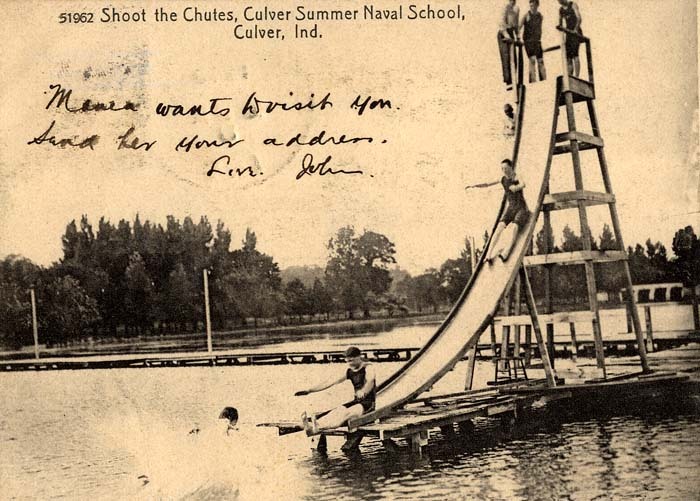 51962 Shoot the Chutes, Culver Summer Naval School,
Culver, Ind.
wants to visit you.
Send her your address.
Love. John.